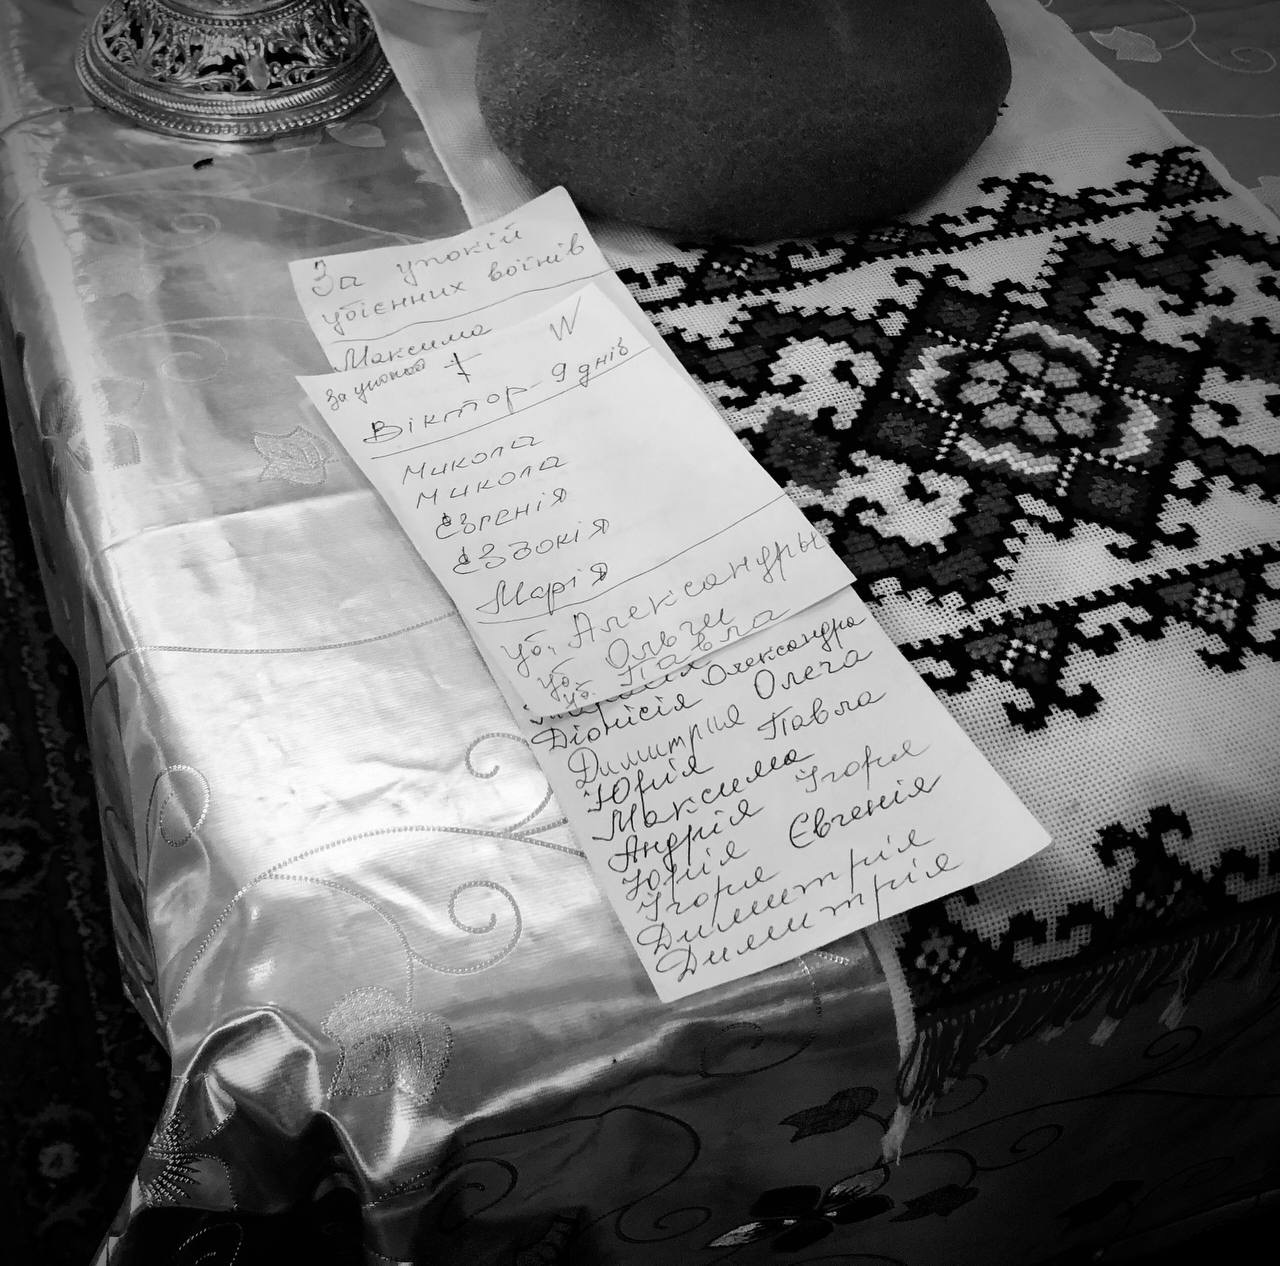 За упокій
убієнних воїнів
Максима
За упокой
Віктор - 9 днів
Микола
Микола
Євгенія
Євдокія
Марія
уб. Александры
уб. Ольги
уб. Павла
Олександра
Діонісія Олега
Димитрія Павла
Юрія
Максима Ігоря
Андрія Євгенія
Юрія
Ігоря Димитрія
Димитрія